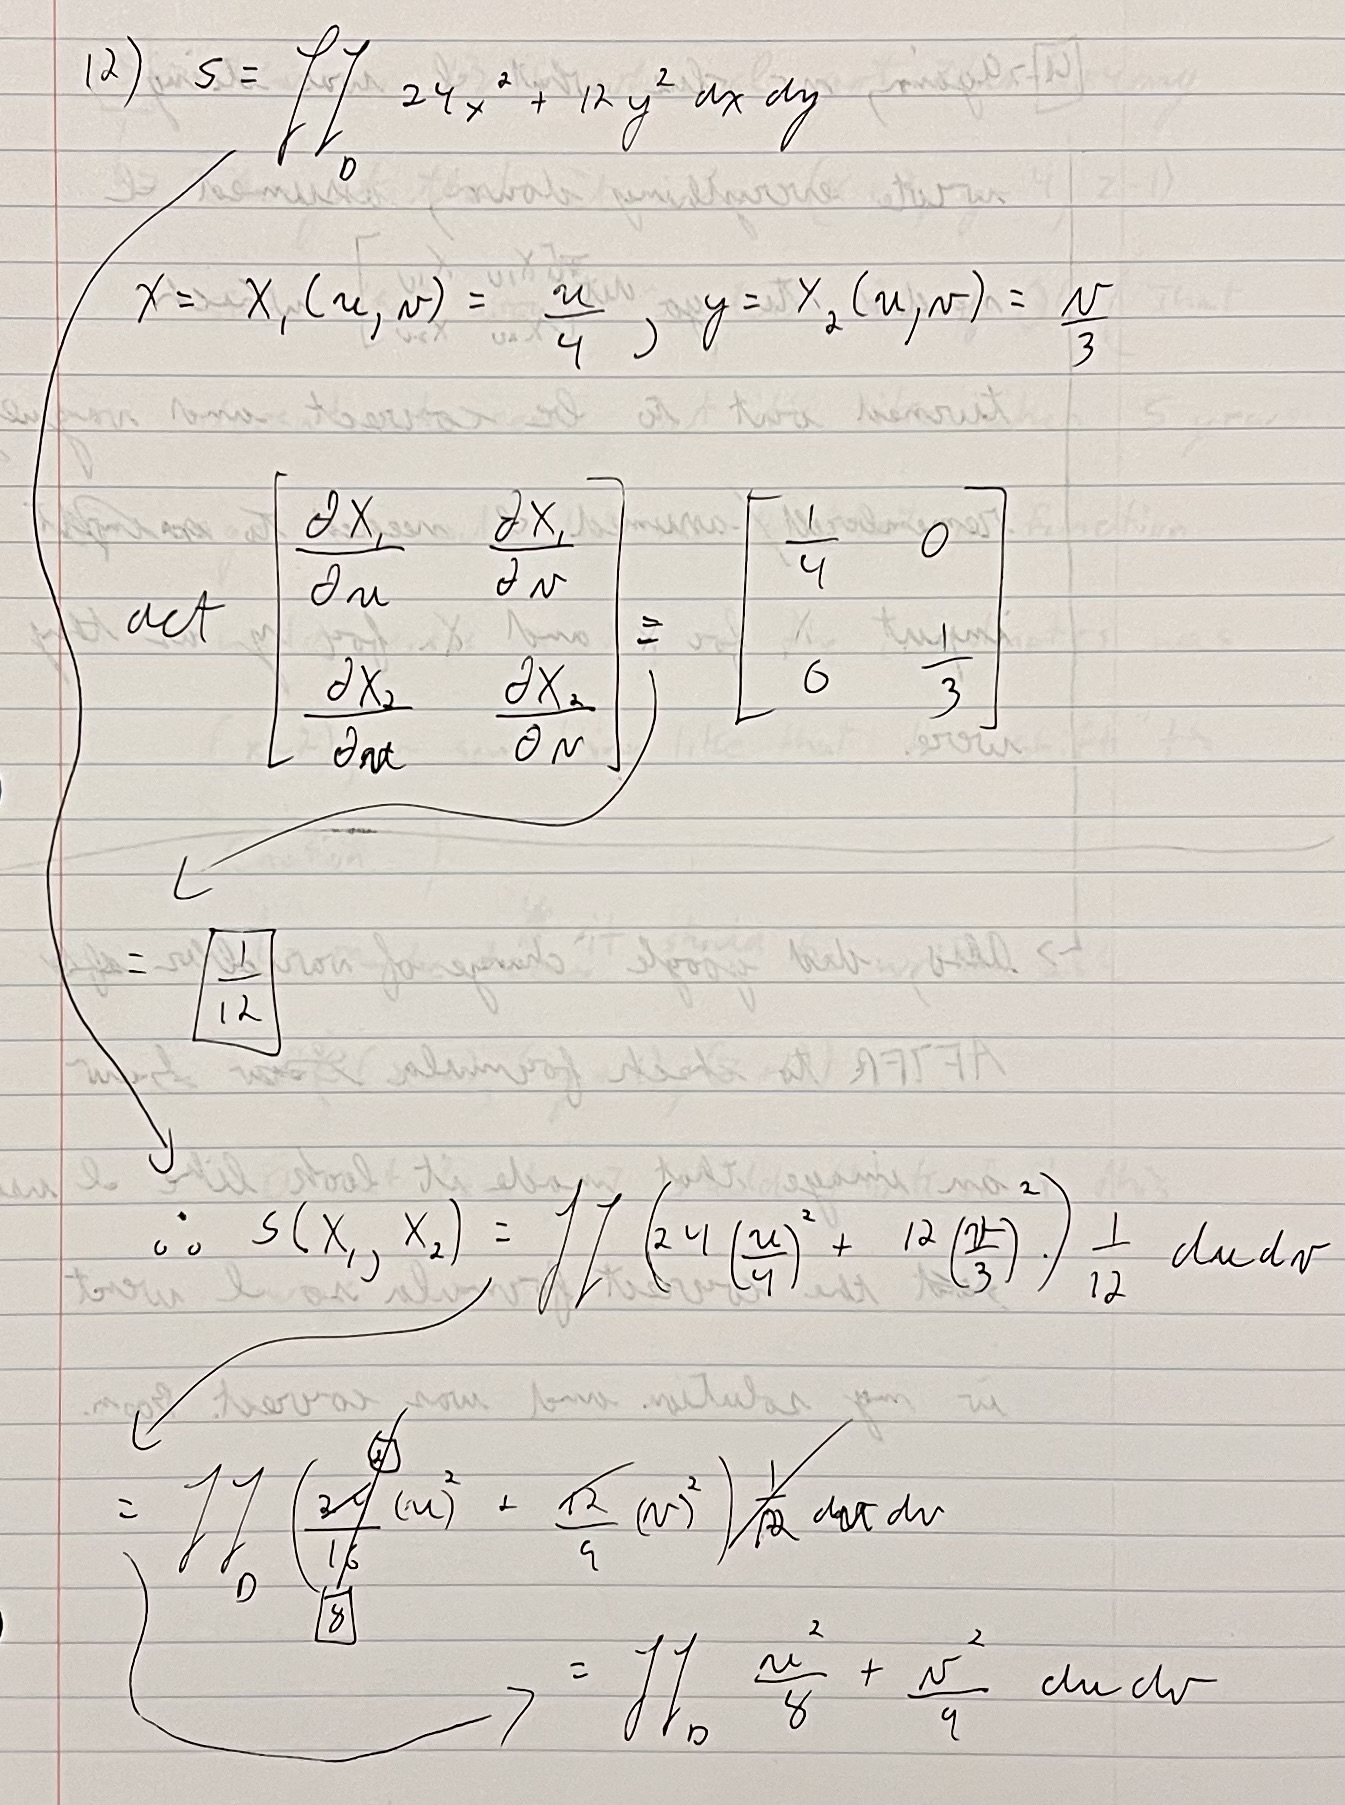 12) S = ∬_D 24x² + 12y² dx dy
x = X₁(u,v) = u/4 , y = X₂(u,v) = v/3
det [ ∂X₁/∂u ∂X₁/∂v ; ∂X₂/∂u ∂X₂/∂v ] = [ 1/4 0 ; 0 1/3 ]
= 1/12
∴ S(X₁, X₂) = ∬ (24(u/4)² + 12(v/3)².) 1/12 du dv
= ∬_D (24/16 (u)² + 12/9 (v)²) 1/12 du dv
8
= ∬_D u²/8 + v²/9 du dv